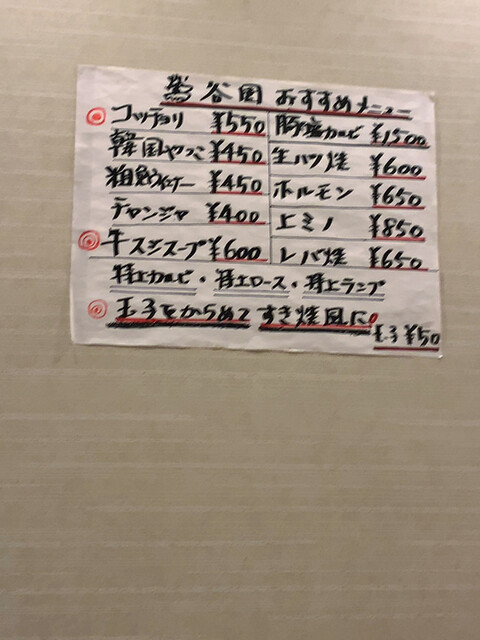 熊谷園 おすすめメニュー
コッチョリ ¥550
韓国やっこ ¥450
粗挽ウインナー ¥450
チャンジャ ¥400
牛スジスープ ¥600
豚塩カルビ ¥1500
生ハツ焼 ¥600
ホルモン ¥650
上ミノ ¥850
レバ焼 ¥650
特上カルビ・特上ロース・特上ランプ
玉子をからめて すき焼風に!
玉子¥50